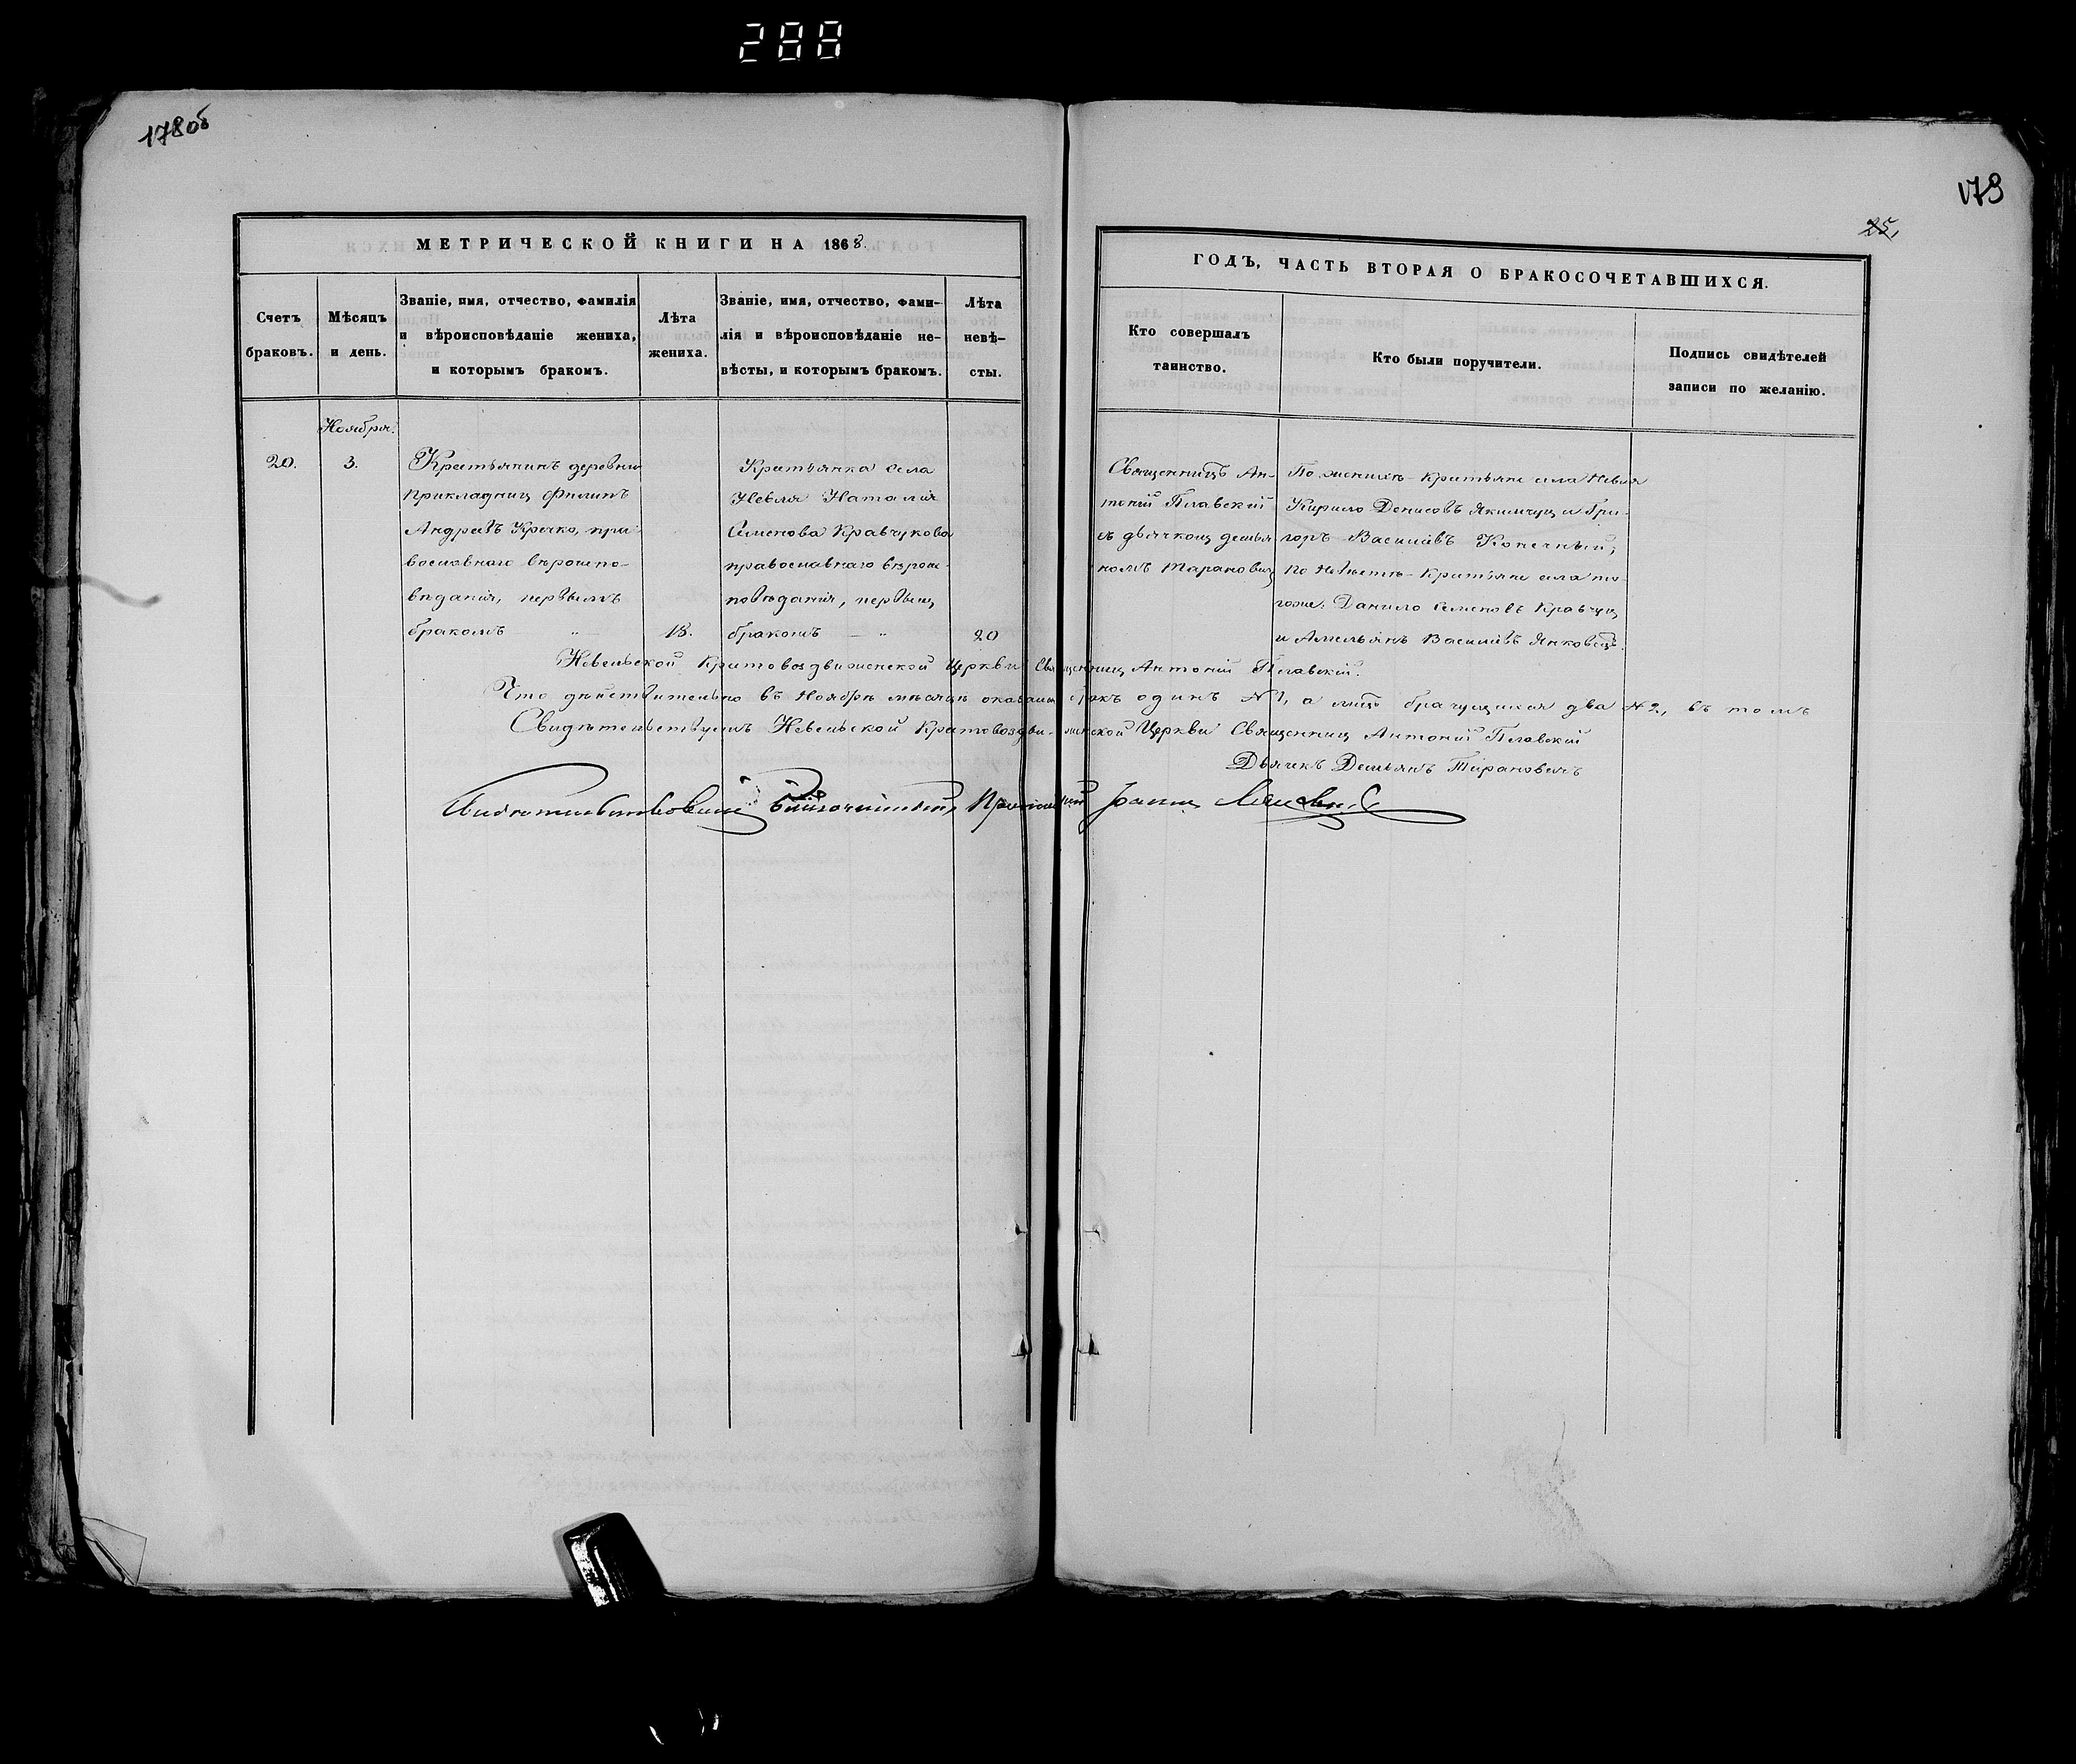 288
178об
179
25,
МЕТРИЧЕСКОЙ КНИГИ НА 1868.
Счетъ браковъ.
Мѣсяцъ и день.
Званіе, имя, отчество, фамилія
и вѣроисповѣданіе жениха,
и которымъ бракомъ.
Лѣта жениха.
Званіе, имя, отчество, фами-
лія и вѣроисповѣданіе не-
вѣсты, и которымъ бракомъ.
Лѣта
невѣ-
сты.
ГОДЪ, ЧАСТЬ ВТОРАЯ О БРАКОСОЧЕТАВШИХСЯ.
Кто совершалъ
таинство.
Кто были поручители.
Подпись свидѣтелей
записи по желанію.
Ноября.
20.
3.
Крестьянинъ деревни
Прикладникъ Филипъ
Андреевъ Кречко, пра-
вославнаго вѣроиспо-
вѣданія, первымъ
бракомъ
18.
Крестьянка села
Невля Наталія
Семенова Кравчукова
православнаго вѣроис-
повѣданія, первымъ
бракомъ
20
Священникъ Ан-
тоній Плавскій
съ дьячкомъ Демья
номъ Тарановичъ
По женихѣ - крестьяне села Невля
Кирило Денисовъ Якимчукъ и Гри-
горъ Василіевъ Конечный;
по невѣстѣ - крестьяне села то-
гоже: Данило Семеновъ Кравчукъ
и Амельянъ Василіевъ Янковецъ.
Невельской Крестовоздвиженской Церкви Священникъ Антоній Плавскій.
Что дѣйствительно въ Ноябрѣ мѣсяцѣ оказался бракъ одинъ №1, а лицъ брачущихся два №2, въ томъ
Свидѣтельствуемъ Невельской Крестовоздвиженской Церкви Священникъ Антоній Плавскій
Дьячекъ Демьянъ Тарановичъ
Свидѣтельствовалъ Благочинный, Протоіерей Іоаннъ